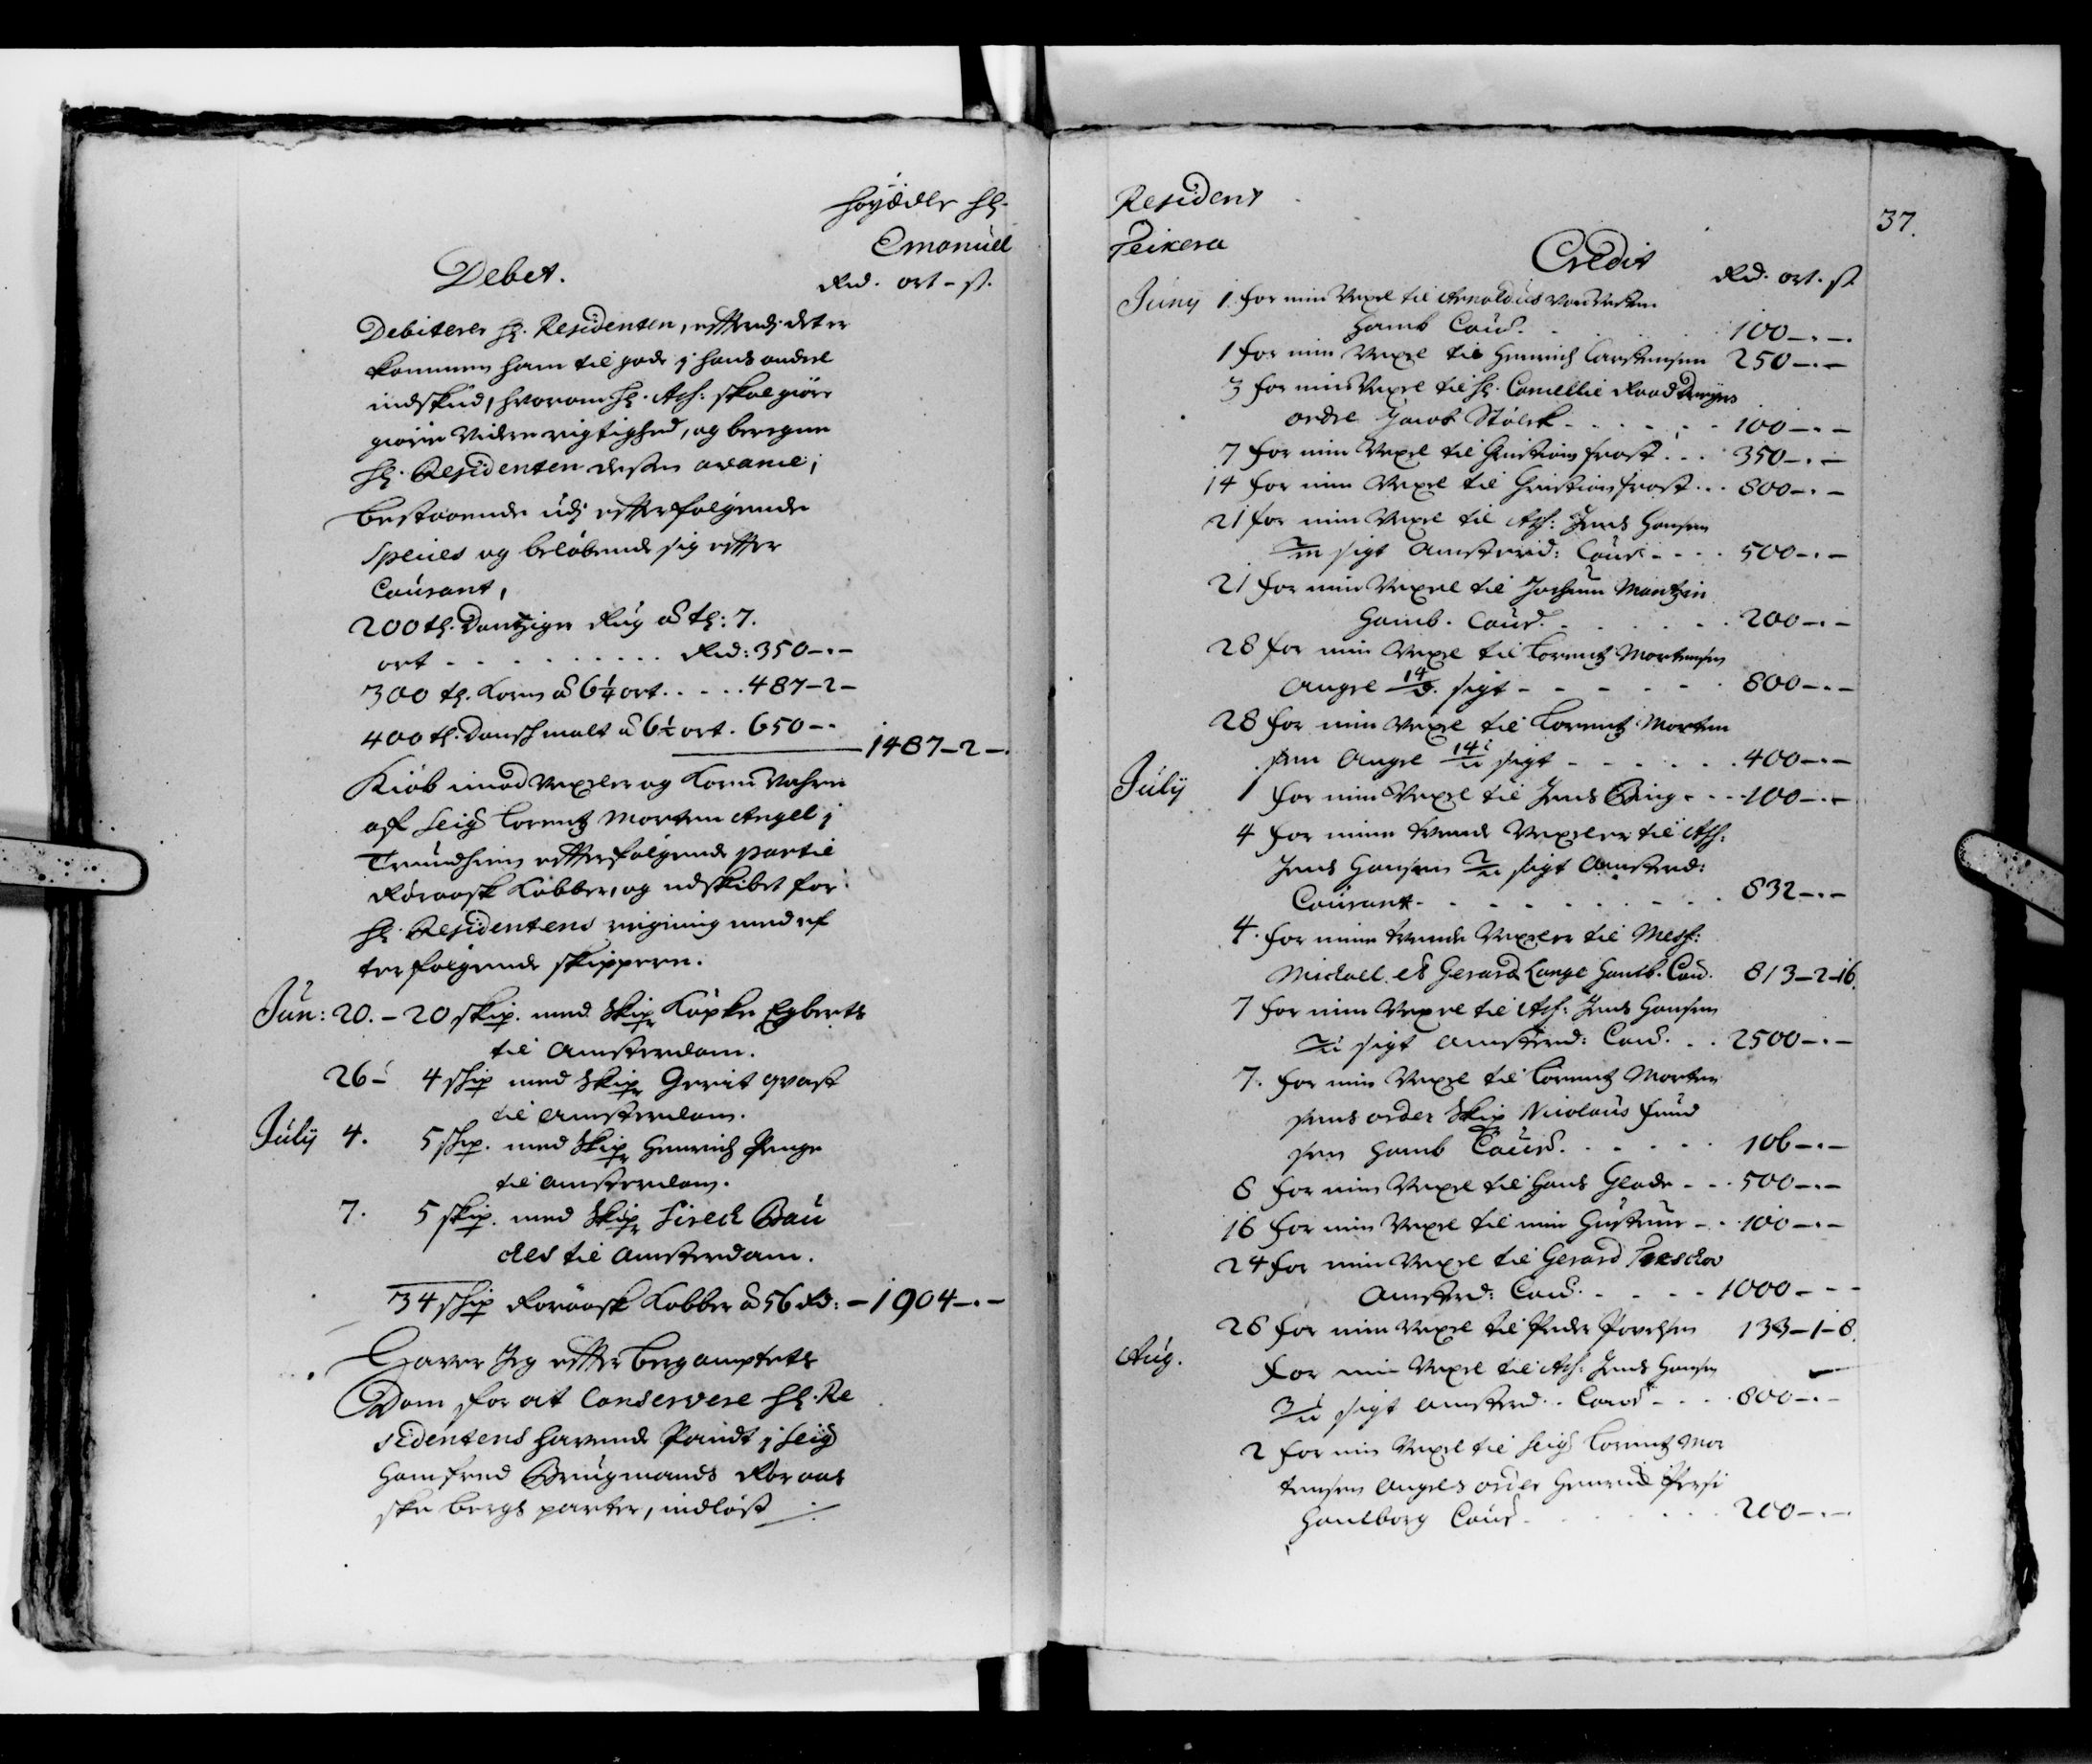 Høyædle Hr.
Emanuel
Debet.
Rd. ort - s.
Debiteres Hr. Residenten, efftterdj det er
kommen ham til gode j hans andeel
indskud, hvorom Hr. Ass: skal giøre
giøre videre rigtighed, og beregne
Hr. Residenten dessen avance,
bestaaende udj effterfølgende
Species og beløbende sig effter
Courant,
200 tr. Dantziger Rug a tr: 7.
ort - - - Rd: 350-.-
300 tr. Korn a 6½ ort. . . . . 487-2-
400 tr. Dansch malt a 6½ ort. 650-.
1487-2-.
Kiøb imod Vexeler og Korn Vahre
aff Seigr Lorentz Morten Angel j
Trundhiem effterfølgende partie
Røraask Kobber, og udskibet for
Hr. Residentens reigning med ef
terfølgende skippere.
Jun: 20. - 20 skip. med Skipr Køpke Egberts
til Amsterdam.
26 - 4 skip med Skipr Gerrit qvast
til Amsterdam.
July 4. 5 skip. med Skipr Henrich Penge
til Amsterdam.
7. 5 skip. med Skipr Sireck Bau
des til Amsterdam.
34 skip Røraask Kobber a 56 Rd: - 1904-.-
Haver Jeg effter bergamptets
Dom for at Conservere Hr. Re
sidentens havende Pandt j Seigr
Hamfred Brugmands Røraas
ske bergs parter, indløst
Resident
37.
Teixera
Credit
Rd. ort. s
Juny 1. for min Vexel til Arnoldus von
Hamb Cour. 100-.-.
1 for min Vexel til Henrich Carstensen 250-.-
3 for min Vexel til Hr. Cancellie Raad
ordre Jacob Stølck - - - 100-.-
7 for min Vexel til Christian frost . . . 350-.-
14 for min Vexel til Christian frost . . . 800-.-
21 for min Vexel til Ass: Jens Hansen
sigt Amsterd: Cour - - - 500-.-
21 for min Vexel til Jochum Mantzin
Hamb. Cour. 200-.-
28 for min Vexel til Lorentz Mortensen
Angel 14/d. sigt - - - 800-.-
28 for min Vexel til Lorentz Morten
sen Angel sigt - - - 400-.-
July 1 for min Vexel til Jens Bing - - - 100-.-
4 for minne tvende Vexeler til Ass:
Jens Hansen sigt Amsterd:
Courant - - - 832-.-
4. for minne tvende Vexeler til Mess:
Michall et Gerard Lange Hamb. Cour. 813-2-16.
7 for min Vexel til Ass: Jens Hansen
sigt Amsterd: Cour. . . 2500-.-
7. for min Vexel til Lorentz Morten
sens order Skipr Nicolaus
sen Hamb Cour. - - - 106-.-
8 for min Vexel til Hans Glade - - - 500-.-
16 for min Vexel til min Hustrue - - 100-.-
24 for min Vexel til Gerard
Amsterd: Cour. - - - 1000 - - -
28 for min Vexel til Peder Povelsen 133-1-8.
Aug. for min Vexel til Ass: Jens Hansen
sigt Amsterd. Cour - - - 800-.-
2 for min Vexel til Seigr Lorentz Mor
tensen Angels order Henrich
Hamborg Cour - - - 200-.-